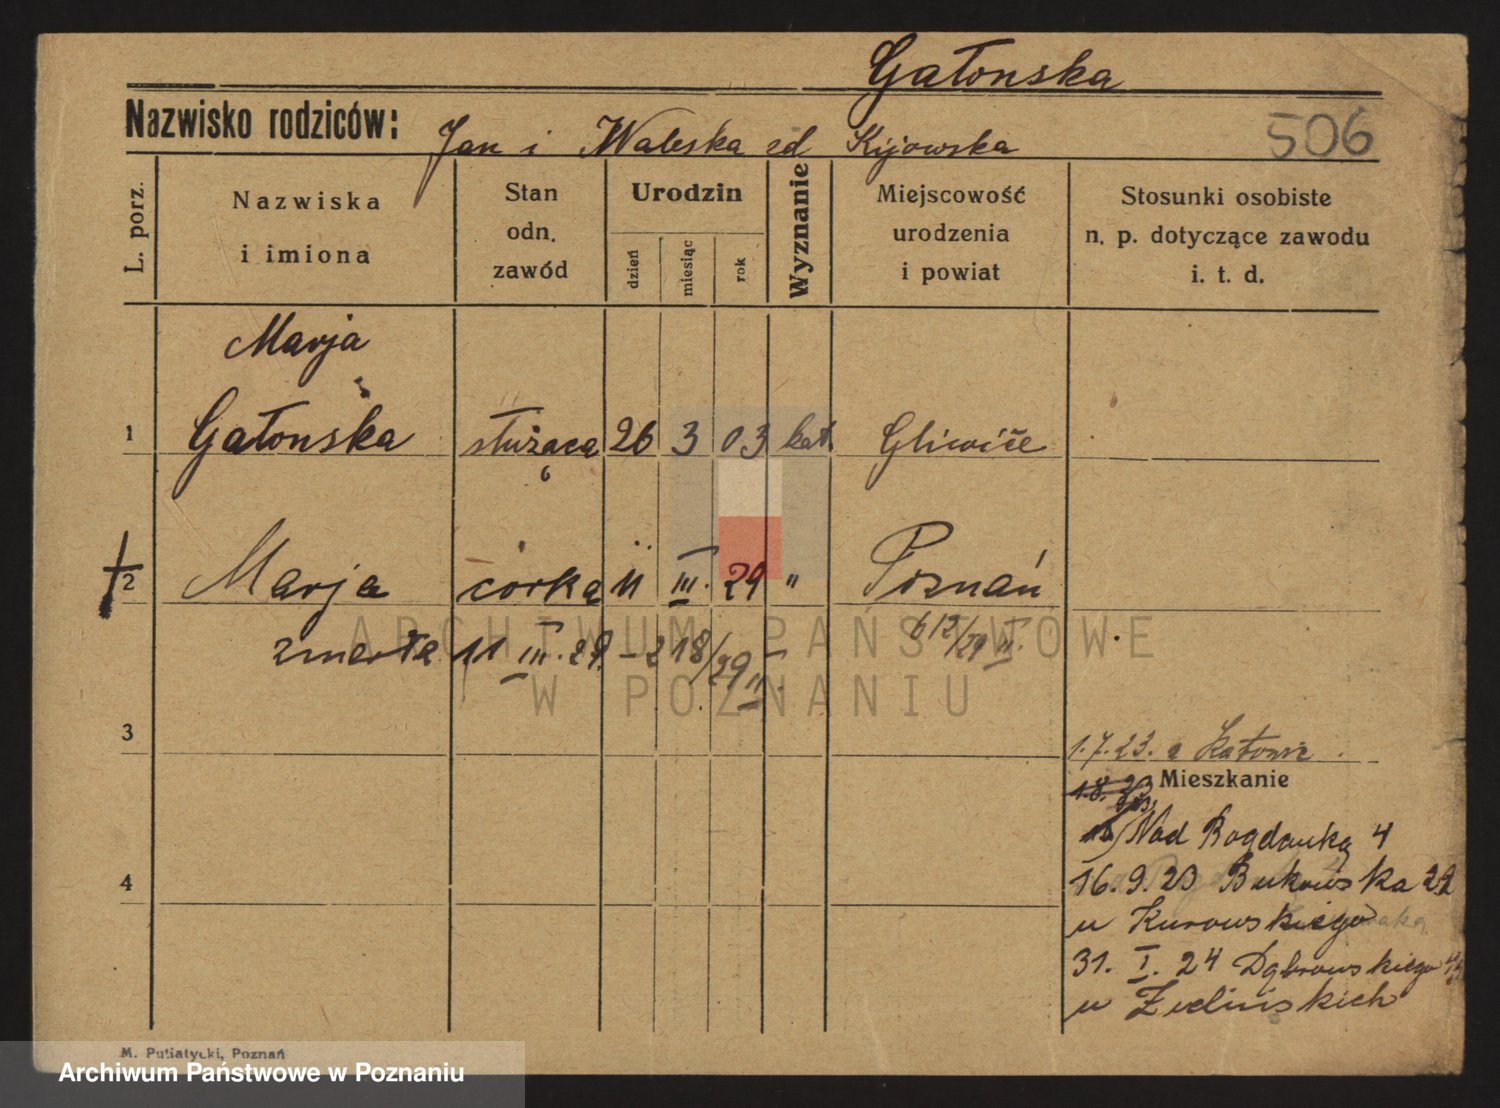 Gałonska
Nazwisko rodziców:
Jan i Waleska zd Kijowska
506
L. porz.
Nazwiska
i imiona
Stan
odn.
zawód
Urodzin
dzień
miesiąc
rok
Wyznanie
Miejscowość
urodzenia
i powiat
Stosunki osobiste
n. p. dotyczące zawodu
i. t. d.
Marja
1 Gałonska służąca 26 3 03 kat. Gliwice
2 Marja córka 11 III. 29 " Poznań
zmarła 11 III. 29. - 218/29 II. 612/29 II.
3
1.7.23. z Katowic
Mieszkanie
1.8. 23
Nad Bogdanką 4
16. 9. 23 Bukowska 22
u Kurowskiego
4
31. I. 24 Dąbrowskiego
u Zielińskich
M. Putiatycki, Poznań
Archiwum Państwowe w Poznaniu
ARCHIWUM PAŃSTWOWE
W POZNANIU